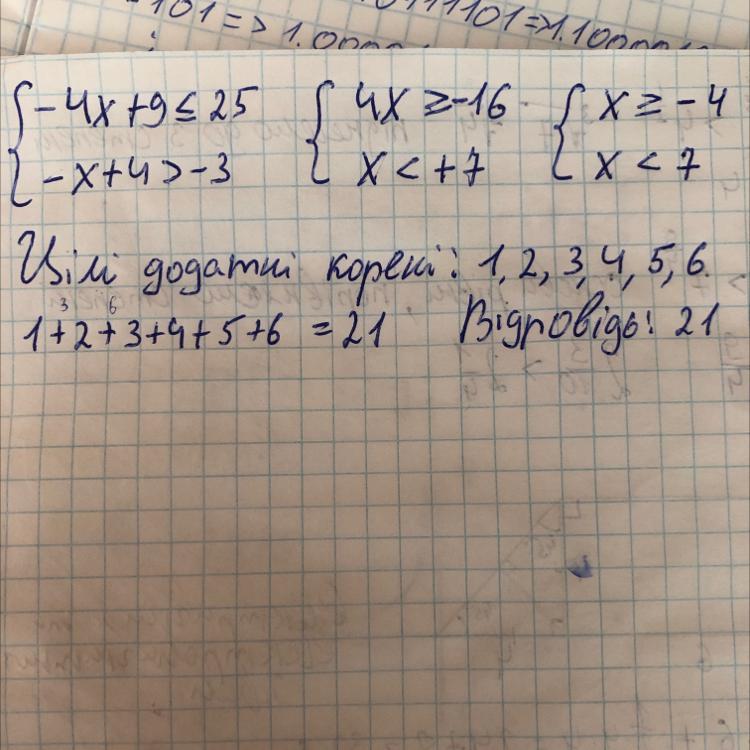 -101 => 1.0000 01111101 => 1.1000010
{ -4x+9 ≤ 25 { 4x ≥ -16 { x ≥ -4
{ -x+4 > -3 { x < +7 { x < 7
Цілі додатні корені: 1, 2, 3, 4, 5, 6.
3 6
1+2+3+4+5+6 = 21 Відповідь: 21